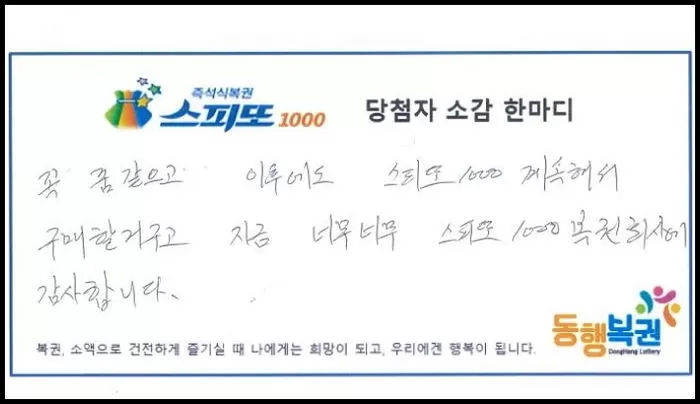 즉석식복권
스피또1000 당첨자 소감 한마디
꼭 꿈같으고 이후에도 스피또1000 계속해서
구매할거구고 지금 너무너무 스피또1000복권회사에
감사합니다.
동행복권
DongHang Lottery
복권, 소액으로 건전하게 즐기실 때 나에게는 희망이 되고, 우리에겐 행복이 됩니다.